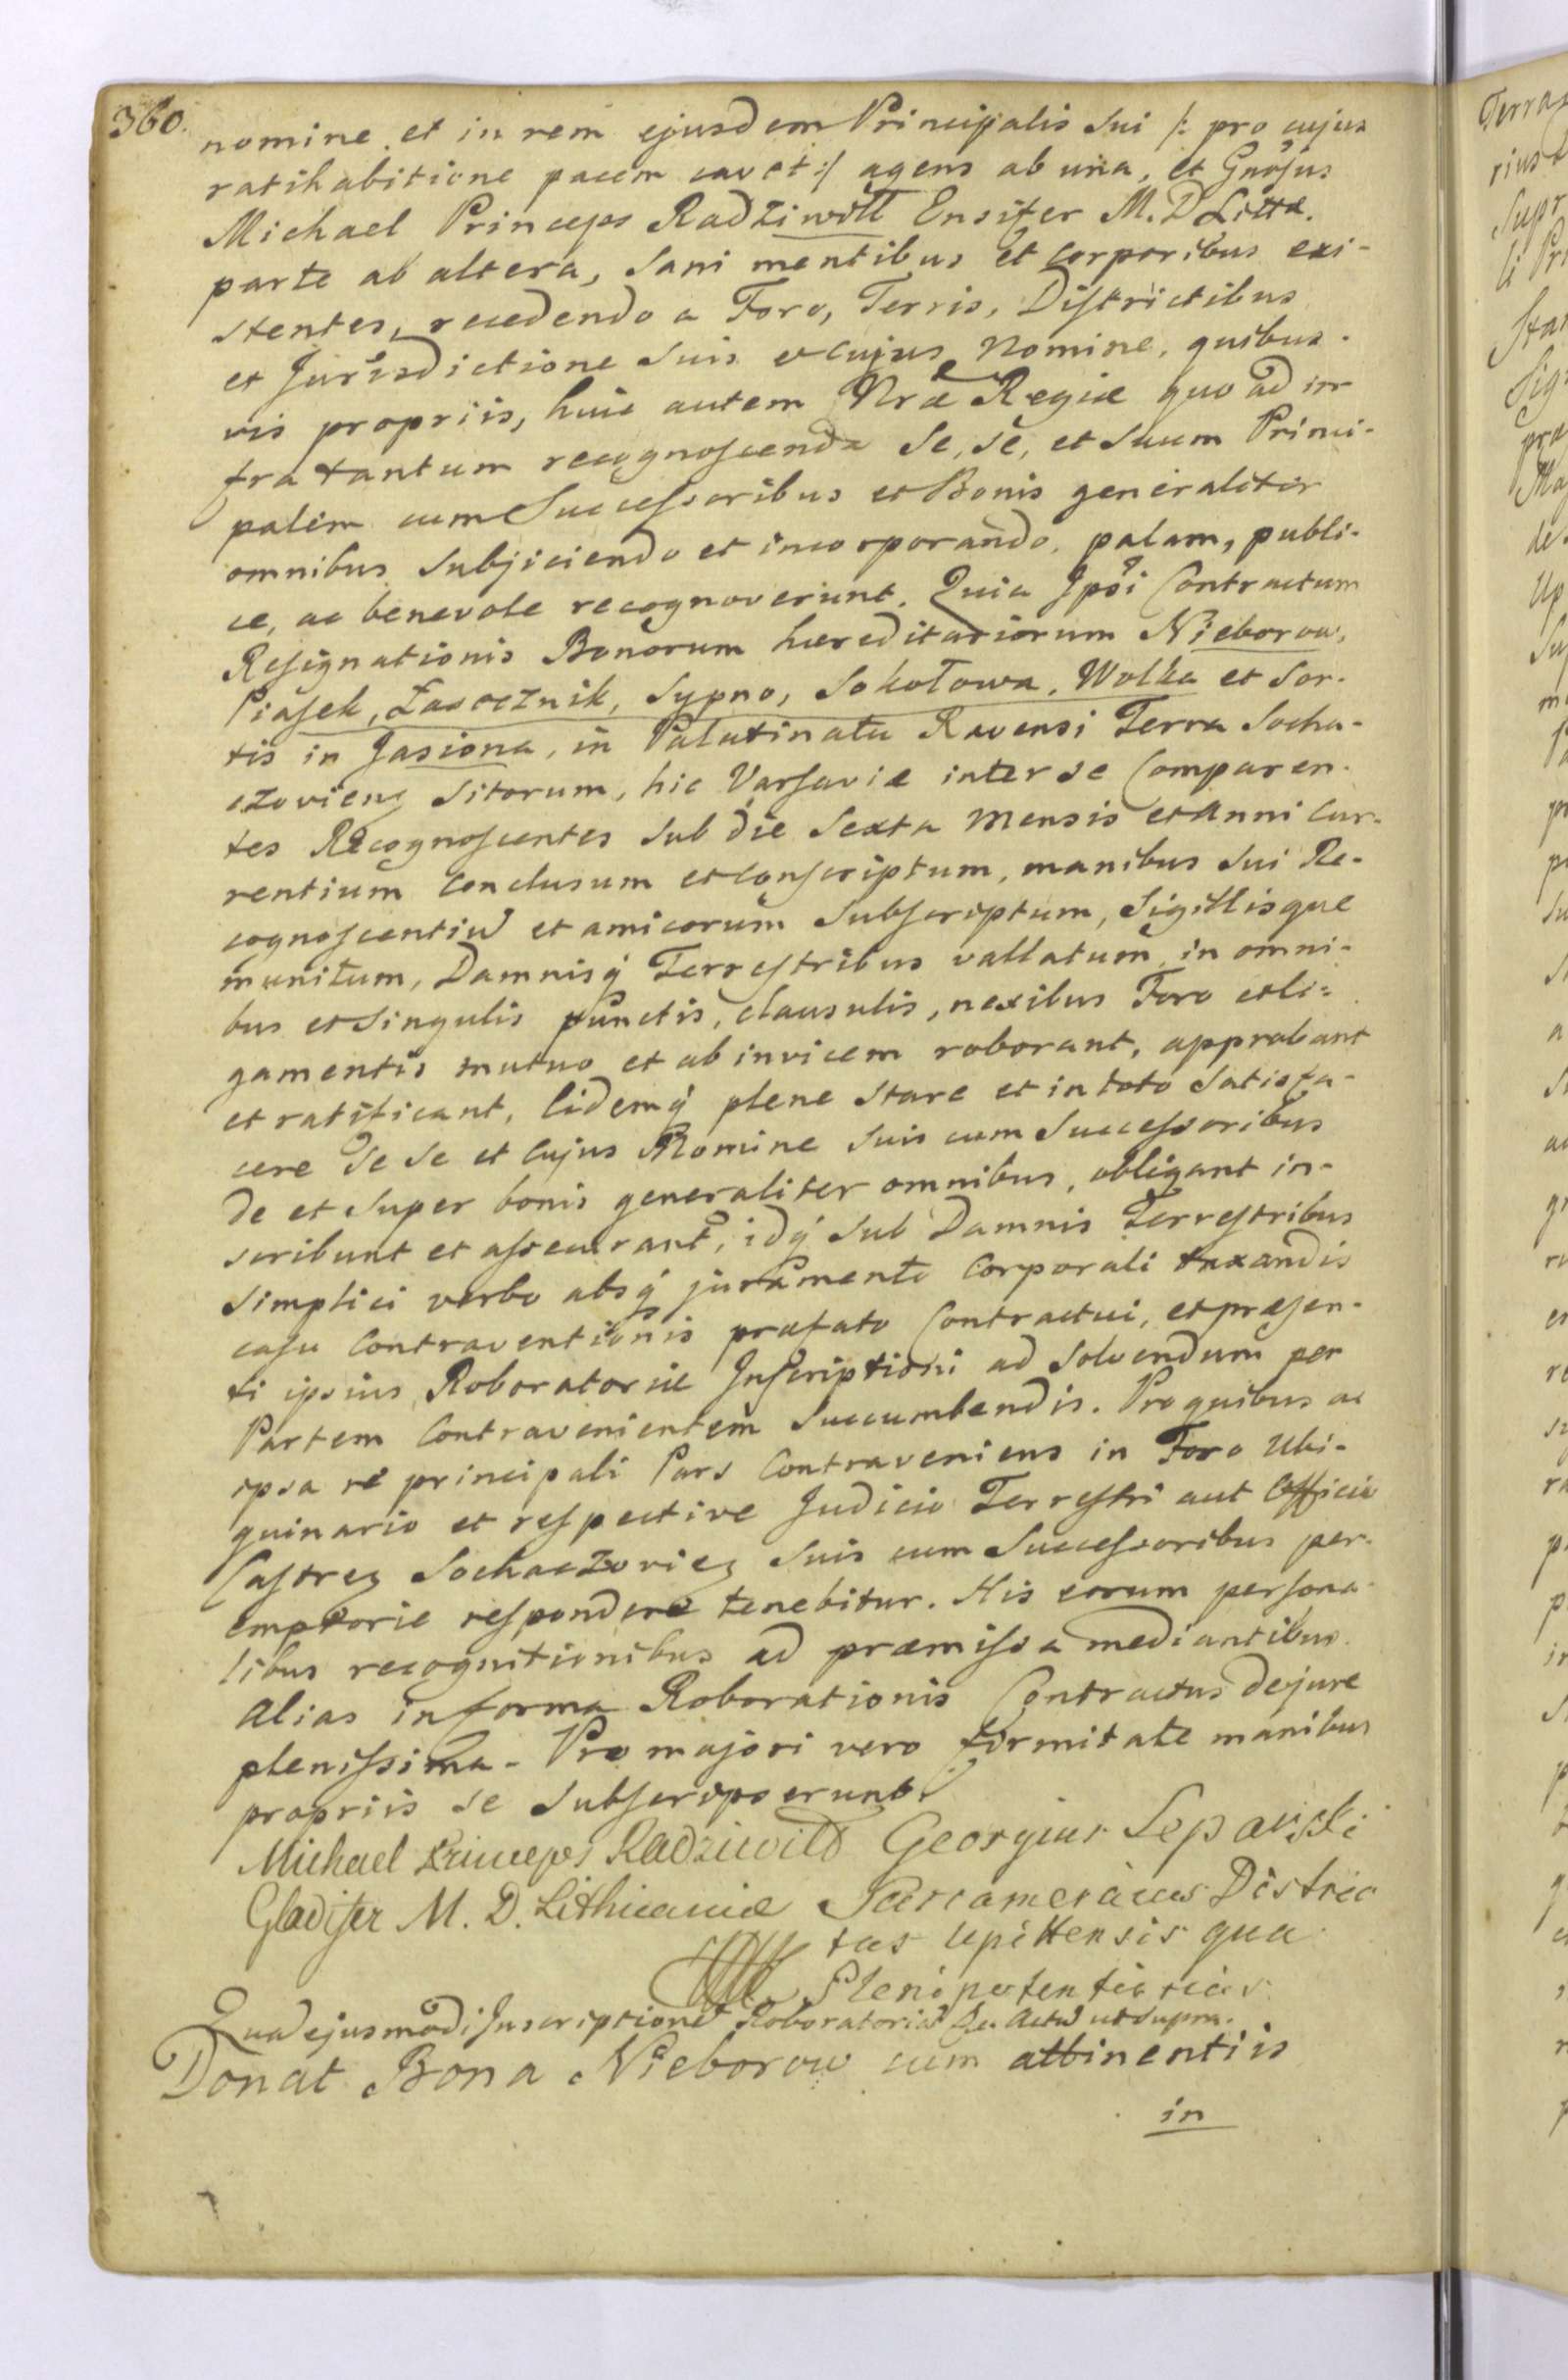 360.
nomine et in rem ejusdem Principalis sui /: pro cujus
ratihabitione pacem cavet :/ agens ab una, et Gnosus
Michael Princeps Radziwiłł Ensifer M. D Littæ.
parte ab altera, sani mentibus et corporibus exi-
stentes, recedendo a Foro, Terris, Districtibus
et Jurisdictione suis et cujus Nomine, quibus-
vis propriis, huic autem Nræ Regiæ quo ad in-
fra tantum recognoscenda se, se, et suum Princi-
palem cum Successoribus et Bonis generaliter
omnibus subjiciendo et incorporando, palam, publi-
ce, ac benevole recognoverunt. Quia Ipsi Contractum
Resignationis Bonorum hæreditariorum Nieborow,
Piasek, Zasocznik, Sypno, Sokołowa, Wolka et Sor-
tis in Jasiona, in Palatinatu Ravensi Terra Socha-
czovieng sitorum, hic Varsaviæ inter se Comparen-
tes Recognoscentes sub die sexta mensis et anni cur-
rentium conclusum et conscriptum, manibus sui Re-
cognoscentiu et amicorum subscriptum, sigillisque
munitum, Damnisq Terrestribus vallatum, in omni-
bus et singulis punctis, clausulis, nexibus Foro et li-
gamentis mutuo et ab invicem roborant, approbant
et ratificant, Eidemq plene stare et in toto satisfa-
cere se se et cujus Nomine suis cum Successoribus
de et super bonis generaliter omnibus, obligant in-
scribunt et assecurant, idq sub Damnis Terrestribus
simplici verbo absq juramento Corporali taxandis
casu Contraventionis præfato Contractui, et præsen-
ti ipsius Roboratoriæ Inscriptioni ad solvendum per
Partem Contravenientem succumbendis. Pro quibus ac
ipsa re principali Pars Contraveniens in Foro Ubi-
quinario et respective Judicio Terrestri aut Officio
Castreg Sochaczovieg suis cum Successoribus per-
emptorie respondere tenebitur. His eorum persona-
libus recognitionibus ad præmissa mediantibus.
Alias in forma Roborationis Contractus de jure
plenissima. Pro majori vero firmitate manibus
propriis se subscripserunt.
Michael Princeps Radziwiłł
Gladifer M. D. Lithuaniæ
Georgius Leparski
Succamerarius Distric
tus Upittensis qua
Plenipotentiarius
Quad ejusmodi Inscriptione Roboratoria &c. Actu ut supra.
Donat Bona Nieborow cum attinentiis
in